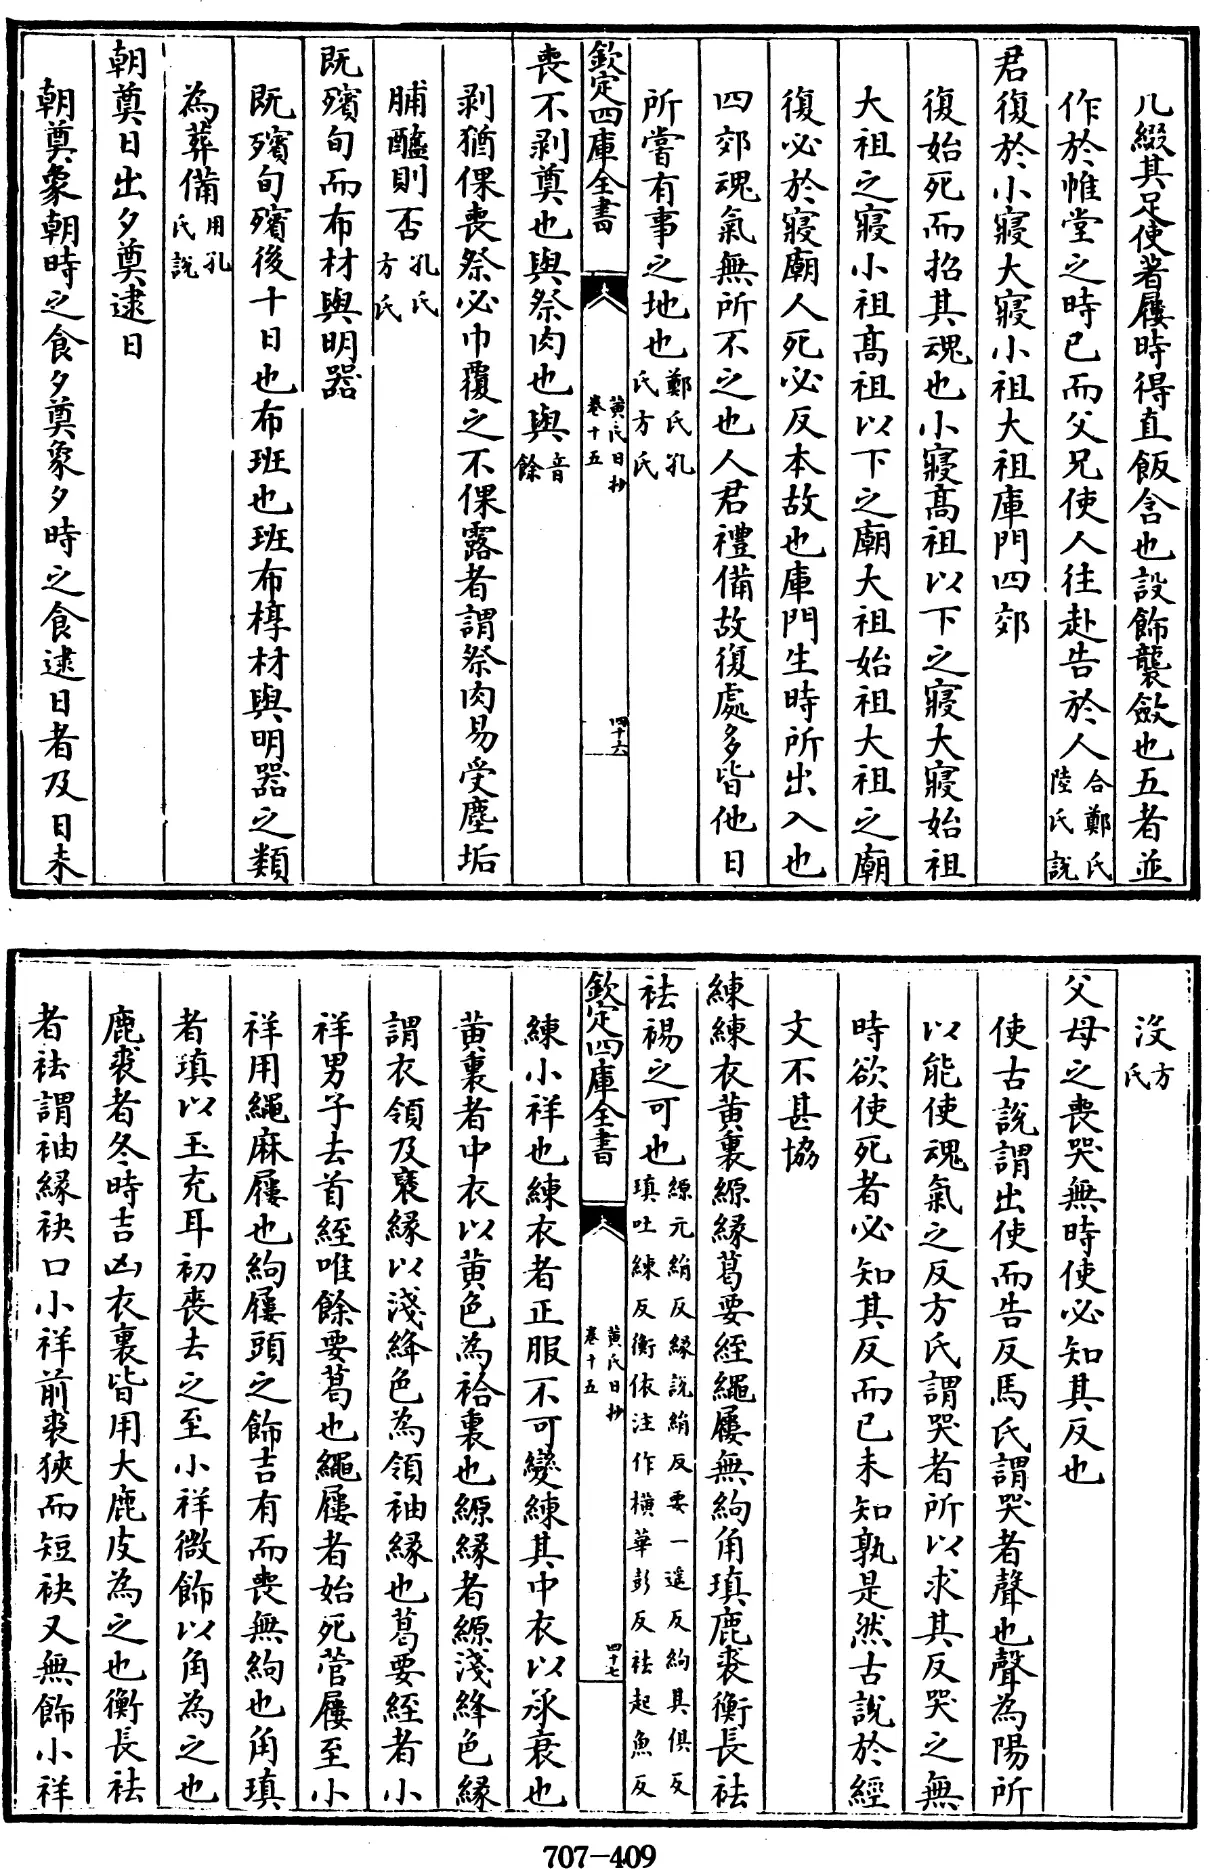 几綴其足使著屨時得直飯含也設飾襲斂也五者並
作於帷堂之時已而父兄使人往赴告於人合鄭氏陸氏説
君復於小寢大寢小祖大祖庫門四郊
復始死而招其魂也小寢髙祖以下之寢大寢始祖
大祖之寢小祖髙祖以下之廟大祖始祖大祖之廟
復必於寢廟人死必反本故也庫門生時所出入也
四郊魂氣無所不之也人君禮備故復處多皆他日
所嘗有事之地也鄭氏孔氏方氏
欽定四庫全書 黄氏日抄卷十五 四十六
喪不剥奠也與祭肉也與音餘
剥猶倮喪祭必巾覆之不倮露者謂祭肉易受塵垢
脯醢則否孔氏方氏
既殯旬而布材與明器
既殯旬殯後十日也布班也班布椁材與明器之類
為葬備用孔氏説
朝奠日出夕奠逮日
朝奠象朝時之食夕奠象夕時之食逮日者及日未
没方氏
父母之喪哭無時使必知其反也
使古説謂出使而告反馬氏謂哭者聲也聲為陽所
以能使魂氣之反方氏謂哭者所以求其反哭之無
時欲使死者必知其反而已未知孰是然古説於經
文不甚協
練練衣黄裏縓縁葛要絰繩屨無絇角瑱鹿裘衡長袪
袪裼之可也縓元絹反縁説絹反要一遥反絇其俱反瑱吐練反衡依注作横華彭反袪起魚反
欽定四庫全書 黄氏日抄卷十五 四十七
練小祥也練衣者正服不可變練其中衣以承衰也
黄裏者中衣以黄色為袷裏也縓縁者縓淺絳色縁
謂衣領及褎縁以淺絳色為領袖縁也葛要絰者小
祥男子去首絰唯餘要葛也繩屨者始死菅屨至小
祥用繩麻屨也絇屨頭之飾吉有而喪無絇也角瑱
者瑱以玉充耳初喪去之至小祥微飾以角為之也
鹿裘者冬時吉凶衣裏皆用大鹿皮為之也衡長袪
者袪謂袖縁袂口小祥前裘狹而短袂又無飾小祥
707-409